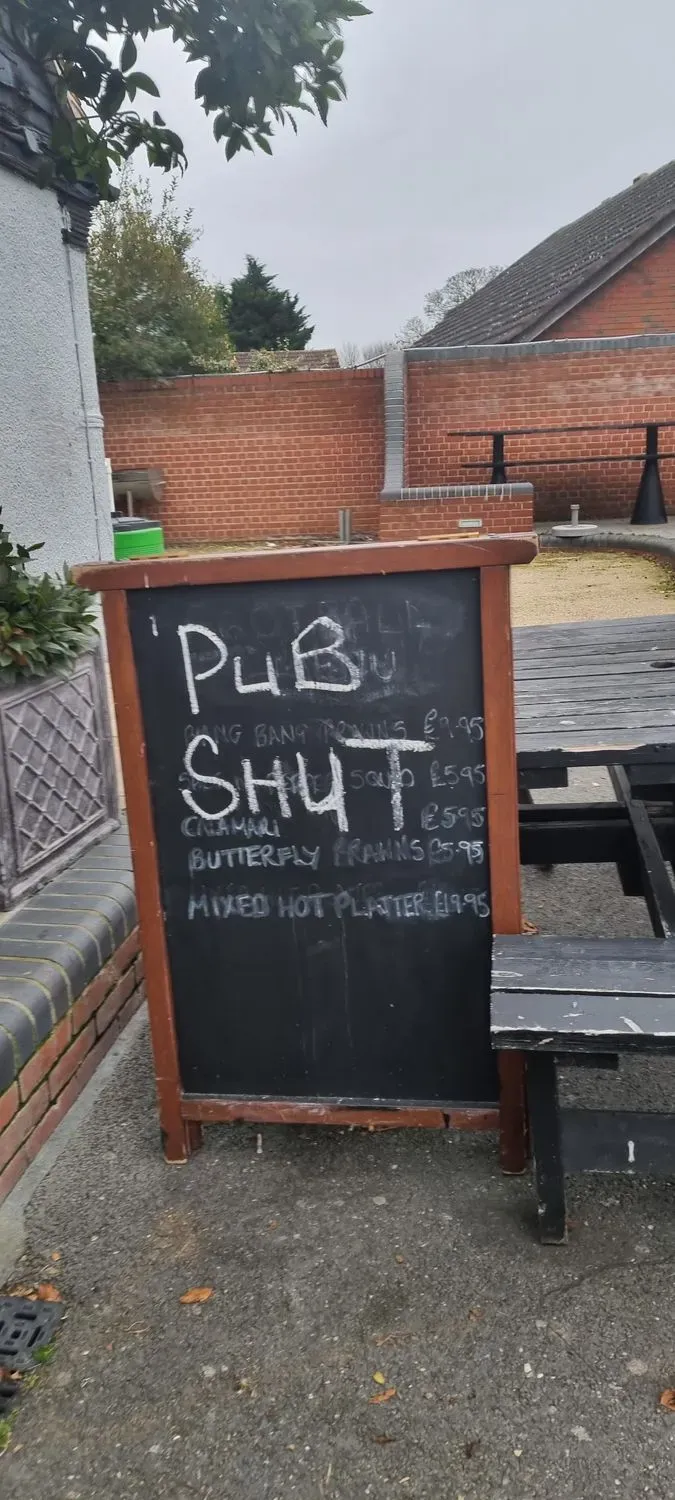 PuB
BANG BANG PRAWNS £9.95
SHUT
SQUID £5.95
CALAMARI £5.95
BUTTERFLY PRAWNS £5.95
MIXED HOT PLATTER £19.95